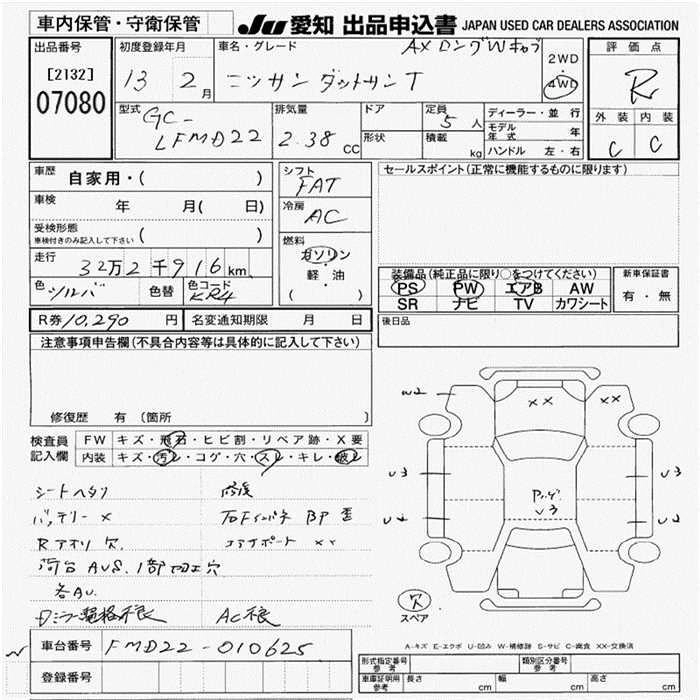 車内保管・守衛保管
JU 愛知 出品申込書 JAPAN USED CAR DEALERS ASSOCIATION
出品番号
[2132]
07080
初度登録年月
13 2月
車名・グレード
AXロングWキャブ
ニッサン ダットサンT
2WD
・
4WD
評価点
R
外装 内装
C C
型式
GC-
LFMD22
排気量
2.38 CC
ドア
形状
定員
5 人
積載
kg
ディーラー・並行
モデル年式 年
ハンドル 左・右
車歴 自家用・( )
車検 年 月( 日)
受検形態
車検付きのみ記入して下さい ( )
走行 32万2千916km
色 シルバ 色替 色コード KR4
シフト
FAT
冷房
AC
燃料
ガソリン
・
軽・油
( )
セールスポイント(正常に機能するものに限ります)
装備品(純正品に限り○をつけてください)
PS PW エアB AW
SR ナビ TV カワシート
新車保証書
有・無
R券 10,290 円 名変通知期限 月 日
後日品
注意事項申告欄(不具合内容等は具体的に記入して下さい)
修復歴 有(箇所 )
検査員記入欄
FW キズ・飛石・ヒビ割・リペア跡・X要
内装 キズ・汚レ・コゲ・穴・スレ・キレ・破レ
シートヘタリ
バッテリーX
Rアオリ欠
荷台AUS.1部切工穴
各AU.
修復
XX
AC不良
U2
XX
XX
U3
U3
U2
U3
欠
スペア
車台番号 FMD22-010625
登録番号
A-キズ E-エクボ U-凹み W-補修跡 S-サビ C-腐食 XX-交換済
形式指定番号 参考
類別区分番号 参考
車庫証明用 参考
長さ cm
幅 cm
高さ cm